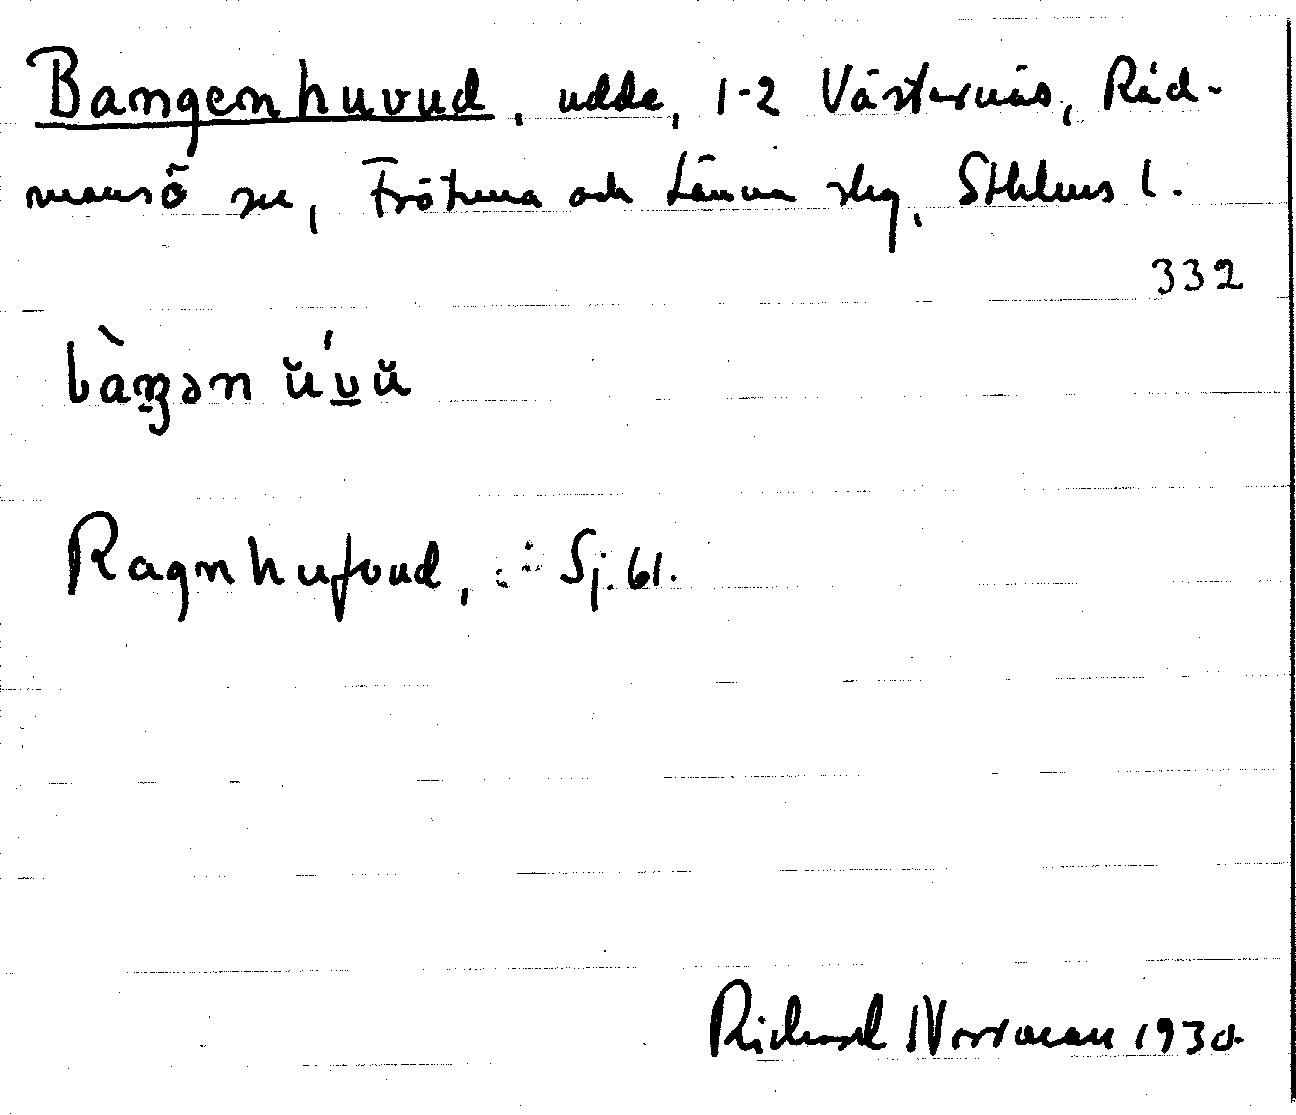 Bangenhuvud, udde, 1-2 Västernäs, Råd-
mansö sn, Frötuna och Länna skg, Sthlms l.
332
bàŋ̠ən ŭ'v̠ŭ
Ragnhufvud, Sj. 61.
Richard Norrman 1930.